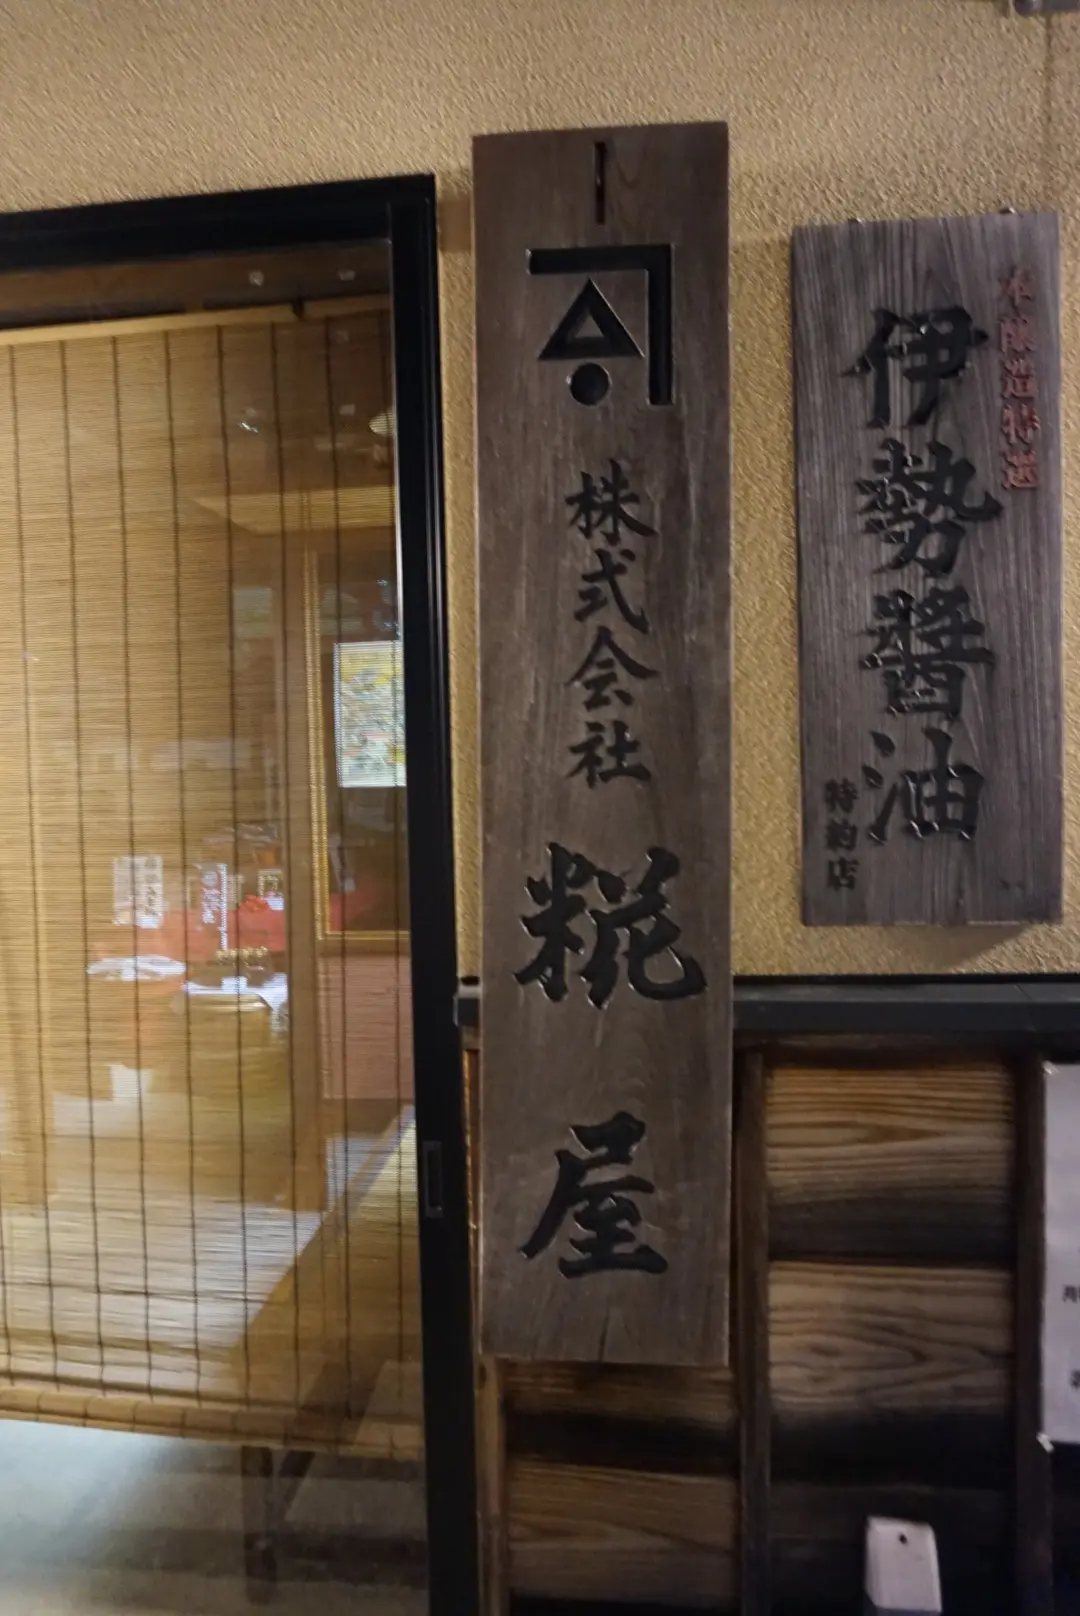 株式会社
糀屋
本醸造特選
伊勢醬油
特約店